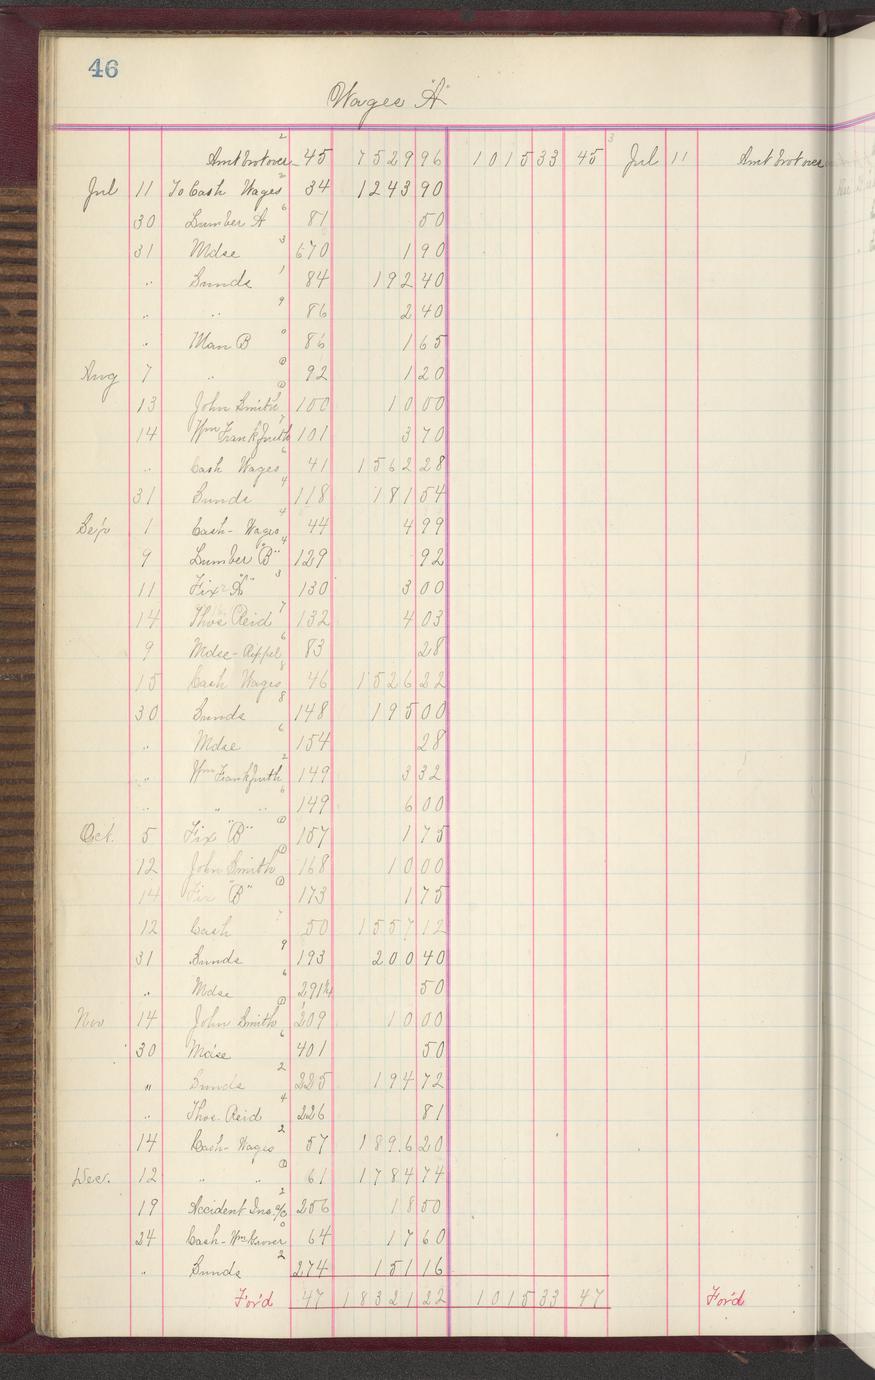 46
Wages "A"
Amt brot over 2 45 7529 96 1015 33 45 3 Jul 11 Amt brot over
Jul 11 To Cash Wages 2 34 1243 90
30 Lumber A 6 81 50
31 Mdse 3 670 1 90
" Sunds 1 84 192 40
" " 9 86 2 40
" Man B 0 86 1 65
Aug 7 " 0 92 1 20
13 John Smith 0 100 10 00
14 Wm Frank Smith 7 101 3 70
" Cash Wages 6 41 1562 28
31 Sunds 4 118 181 54
Sep 1 Cash - Wages 4 44 4 99
9 Lumber "B" 4 129 92
11 Fix "A" 3 130 3 00
14 Thos Reid 7 132 4 03
9 Mdse - 6 83 28
15 Cash Wages 8 46 1526 22
30 Sunds 8 148 195 00
" Mdse 6 154 28
" Wm Frank Smith 2 149 3 32
" " " 6 149 6 00
Oct. 5 Fix "B" 0 157 1 75
12 John Smith 0 168 10 00
14 Fix "B" 0 173 1 75
12 Cash 7 50 1557 12
31 Sunds 9 193 200 40
" Mdse 6 291¼ 50
Nov 14 John Smith 0 209 10 00
30 Mdse 6 401 50
" Sunds 2 225 194 72
" Thos. Reid 4 226 81
14 Cash - Wages 2 57 1896 20
Dec. 12 " " 0 61 1784 74
19 Accident Ins. a/c 2 256 18 50
24 Cash - Wm 0 64 17 60
" Sunds 2 274 151 16
For'd 47 18321 22 1015 33 47 For'd